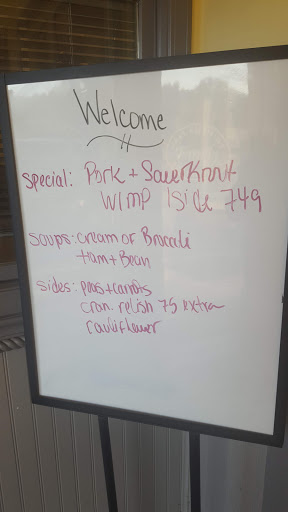 Welcome
Special: Pork + Sauerkraut
w/mp 1side 749
Soups: cream of Broccoli
Ham + Bean
Sides: peas + carrots
cran. relish 75 extra
cauliflower